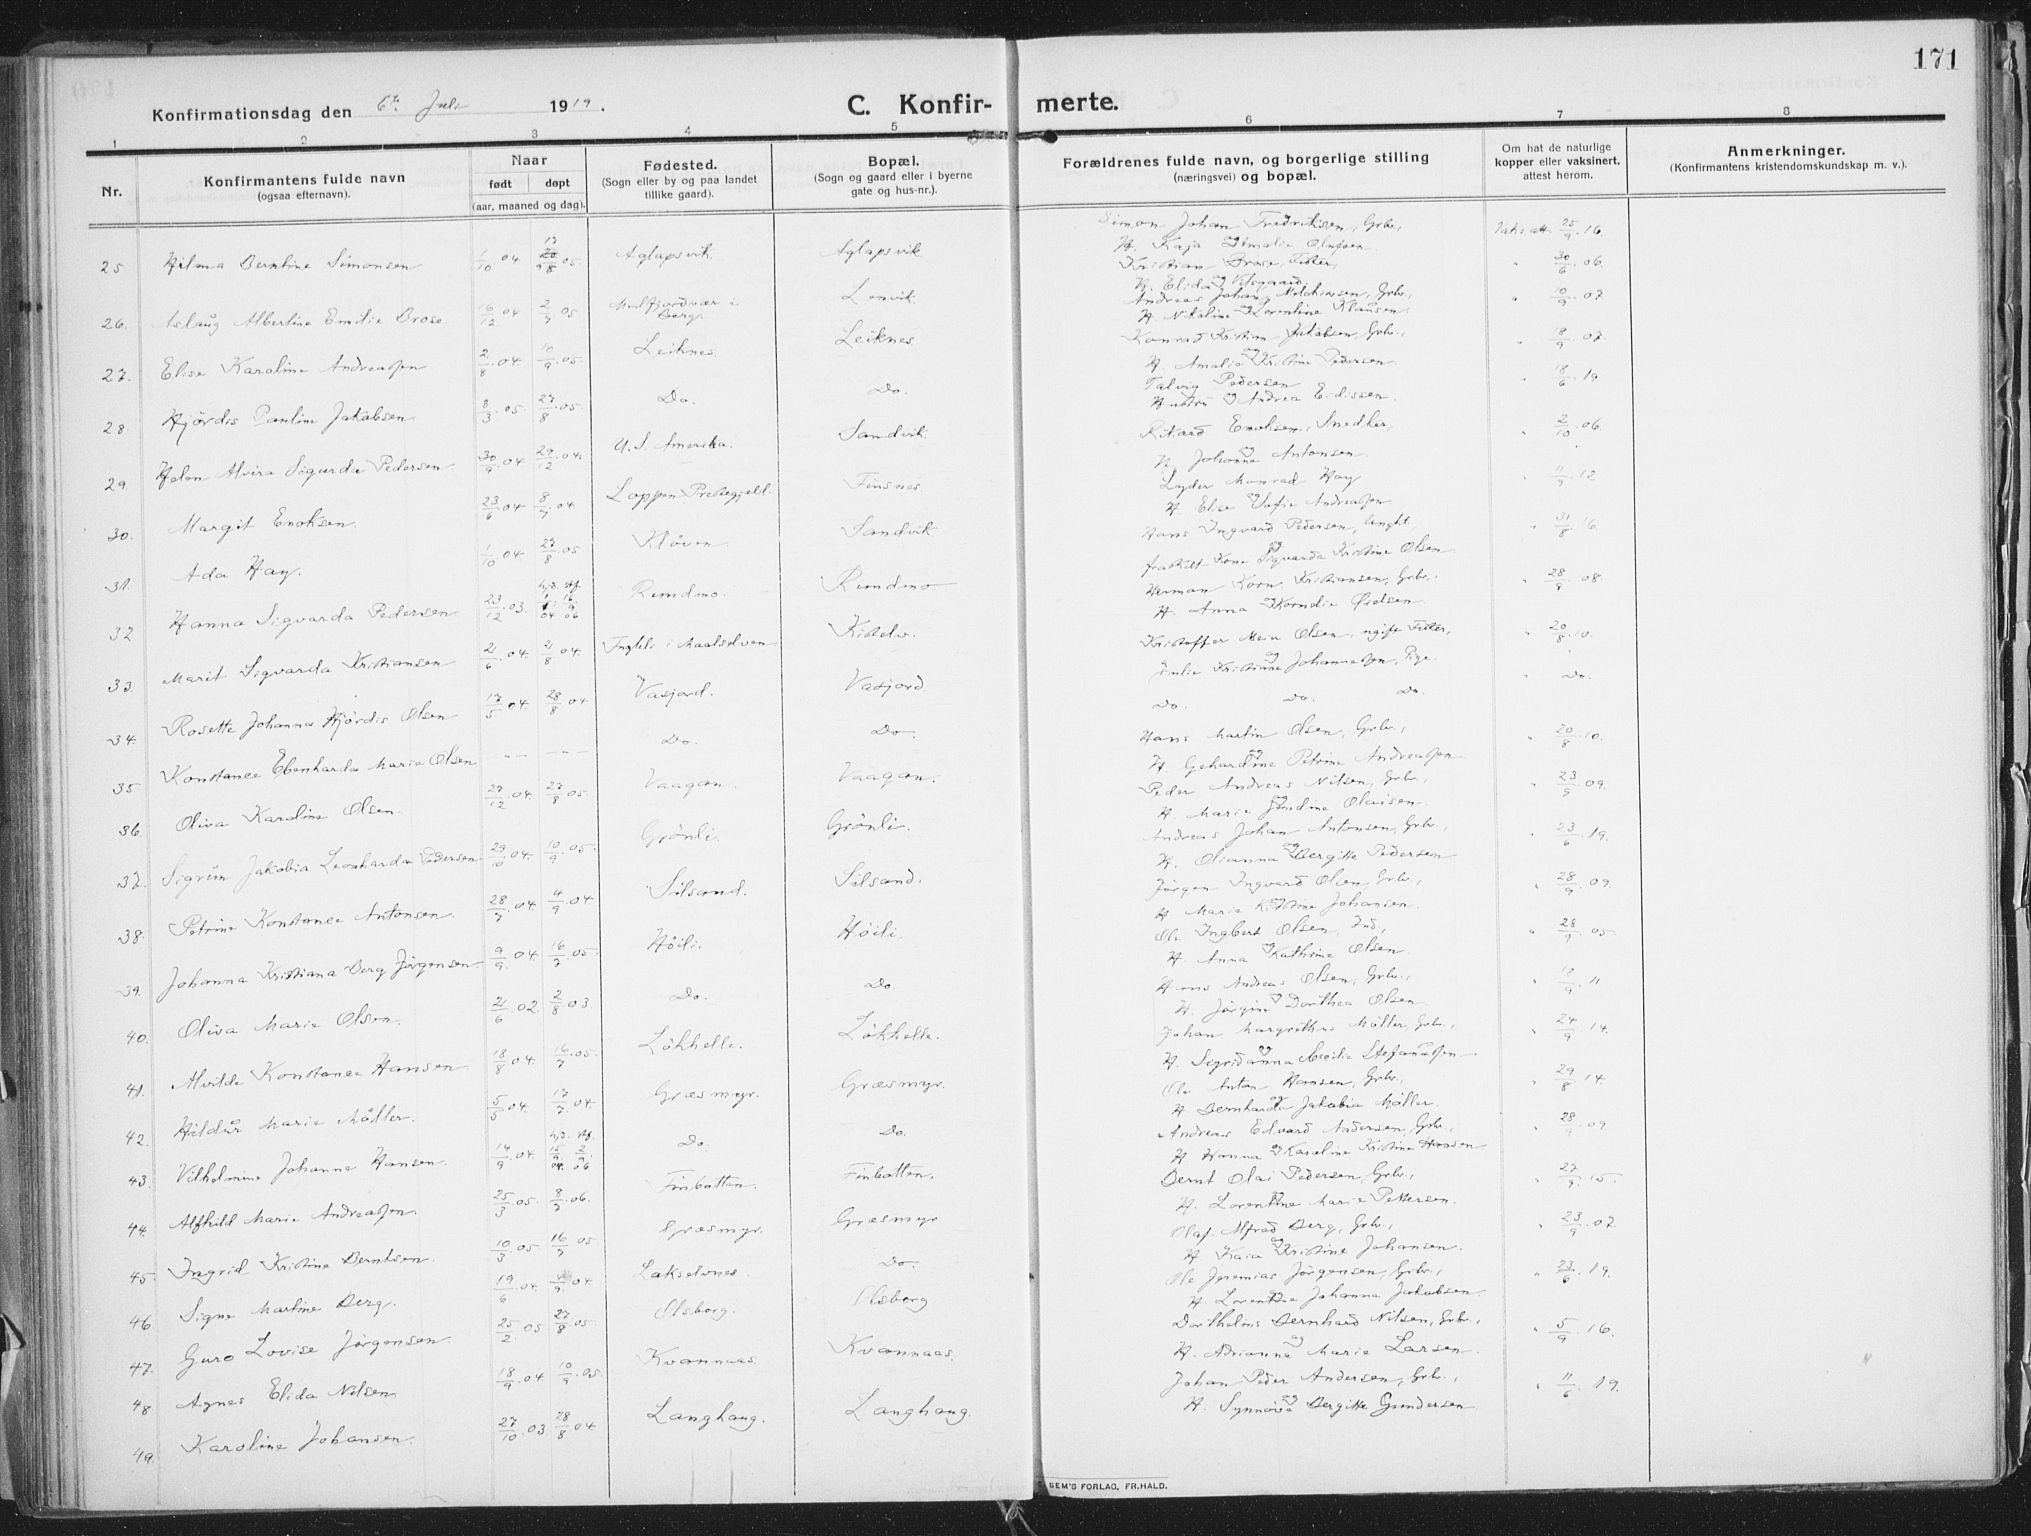 171
Konfirmationsdag den 6te Juli 1919. C. Konfir- merte.
1 2 3 4 5 6 7 8
Nr. Konfirmantens fulde navn (ogsaa efternavn). Naar født døpt (aar, maaned og dag). Fødested. (Sogn eller by og paa landet tillike gaard). Bopæl. (Sogn og gaard eller i byerne gate og hus-nr.). Forældrenes fulde navn, og borgerlige stilling (næringsvei) og bopæl. Om hat de naturlige kopper eller vaksinert, attest herom. Anmerkninger. (Konfirmantens kristendomskundskap m. v.).
25. Hilma Berntine Simonsen 1/10 04 Aglapsvik Aglapsvik Simon Johan Fredriksen, Grbr., H. Kaja Olufsen 25/9.16.
26. Aslaug Albertine Emilie Brose 16/12 04 2/7 05 Berg. Lenvik. Kristian Brose, Fisker, 30/6.06.
27. Elise Karoline Andreassen 2/8.04. 10/9.05. Leiknes. Leiknes Andreas Johan, Grbr., H. Nikoline Lorentine Klausen. 10/9.07
28. Hjørdis Pauline Jakobsen 8/3.05. 27/8.05. Do. Do. Konrad Kristian Jakobsen, Grbr., H. Amalia Kristine Pedersen. 18/9.07.
29. Helen Alvira Sigurda Pedersen 30/9.04 29/12.04. U.S. Amerika. Sandvik. Talvig Pedersen Hustru Andrea Eidissen. 18/6.19
30. Margit Enoksen. 23/6.04 8/7.04. Loppen Prestegjeld. Finsnes. Rikard Enoksen, Snedker, H. Johanne Antonsen. 2/10.06.
31. Ada Hay. 1/10.04. 27/8.05. Kløven Sandvik. Lyder Monrad Hay H. Elise Sofie Andreassen. 11/9.12
32 Hanna Sigvarda Pedersen 23/12.03. Rundmo. Rundmo Hans Ingvard Pedersen, fraskilt Kone Sigvarda Kristine Olsen 31/8.16.
33. Marit Sigvarda Kristiansen 21/6.04. 21/8.04. i Maalselven Kistelv. Herman Korn. Kristiansen, Grbr., H. Anna 28/9.08.
34. Rosette Johanna Hjørdis Olsen 17/5.04. 28/8.04 Vasjord. Vasjord Kristoffer Meier Olsen, ugift Fisker, Julie Kristiane Johannessen, Pige. 20/8.10.
35 Konstance Ebenharda Marie Olsen - - - - - - Do. Do. Do. Do. Do. Do.
36. Oliva Karoline Olsen. 27/12.04. 27/8.05. Vaagan. Vaagan. Hans Martin Olsen, Grbr., H. Gehardine Petrine Andreassen 20/8.10.
37. Sigrun Jakobia Leonharda Pedersen 29/10.04. 10/9.05. Grönli. Grönli. Peder Andreas Nilsen, Grbr., H. Marie Olaisen. 23/9.09.
38. Petrine Konstance Antonsen. 28/7.04. 4/9.04 Silsand. Silsand. Andreas Johan Antonsen, Grbr., H. Olianna Bergitte Pedersen 23/6.19.
39. Johanna Kristiana Berg Jørgensen. 9/9.04. 16/7.05. Høili. Høili Jørgen Ingvard Olsen, Grbr., H Marie Kristine Johansen. 28/9.09.
40. Oliva Marie Olsen. 21/6.02. 2/8.03. Do. Do. Ole Ingbert Olsen, Ind., H. Anna Kathrine Olsen. 28/9.05.
41. Alvilde Konstance Hansen. 18/8.04. 16/7.05. Løkhelle. Løkhelle. Hans Andreas Olsen, Grbr., H. Jørgine Dorthea Olsen. 18/9.11
42. Hildur Marie Möller. 5/5.04. 17/7.04. Græsmyr. Græsmyr. Johan Margrethus Möller, Grbr., H. Sigridanna Cecilie Stefanussen 24/9.14.
43. Vilhelmine Johanne Hansen. 14/9.04. Do. Do. Ole Anton Hansen, Grbr., H Bernharda Jakobia Möller. 29/8.14.
44. Alfhild Marie Andreassen. 25/3.05. 8/7.06. Finbotten. Finbotten. Andreas Edvard Andersen, Grbr., H Hanna Karoline Kristine Hansen 28/9.09
45. Ingrid Kristine Berntsen. 10/3.05. 16/7.05 Græsmyr. Græsmyr Bernt Olai Pedersen, Grbr., H. Lorentine Marie Pettersen. 27/9.15.
46. Signe Martine Berg. 19/6.04. 4/9.04 Lakselvnes. Do. Olaf Alfred Berg, Grbr., H Kaia Kristine Johansen. 23/9.07.
47. Guro Lovise Jørgensen. 25/2.05 27/8.05. Olsborg. Olsborg Ole Jeremias Jørgensen, Grbr., H. Lorentze Johanna Jakobsen. 23/6.19.
48 Agnes Elida Nilsen 18/9.04. 10/9.05. Kvannaas. Kvannaas. Dorthelius Bernhard Nilsen, Grbr., H. Adrianna Marie Larsen. 5/9.16.
49. Karoline Johansen. 27/10.03 28/8.04. Langhaug. Langhaug. Johan Peder Andersen, Grbr., H. Synnøve Bergitte Gundersen. 11/6.19.
SEM'S FORLAG, FR.HALD.